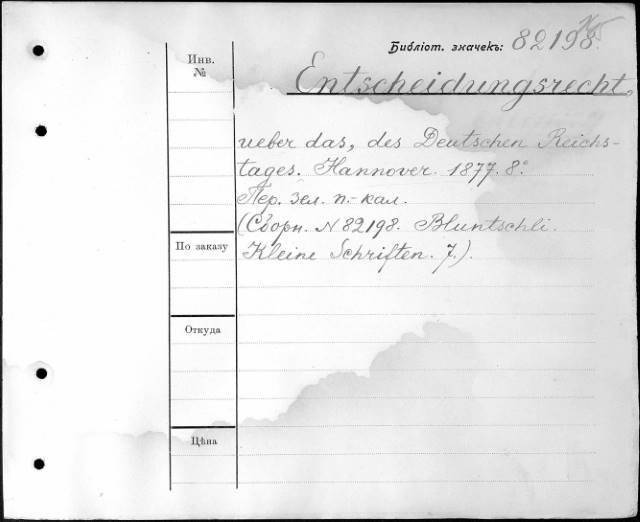 Библіот. значекъ: 82198.
Инв.
№
Entscheidungsrecht,
ueber das, des Deutschen Reichs-
tages. Hannover. 1877. 8°.
Пер. зел. п.-кал.
(Сборн. N 82198. Bluntschli.
По заказу
Kleine Schriften. 7.).
Откуда
Цѣна